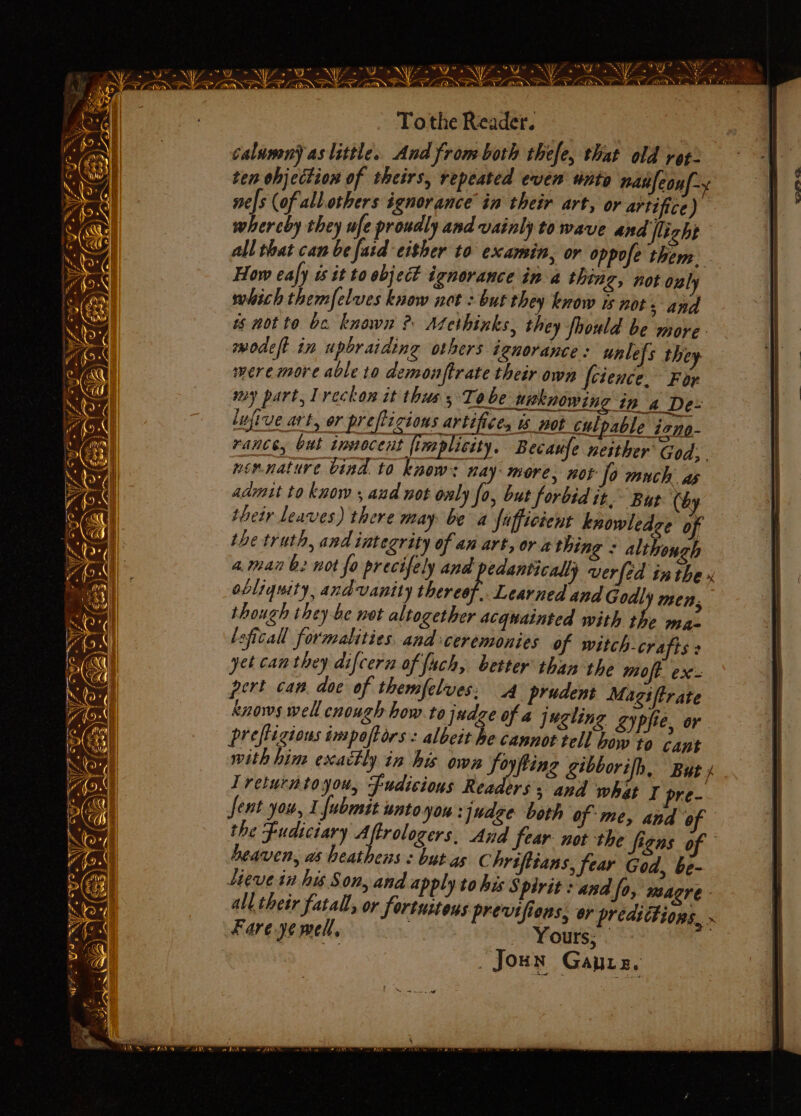 To the Reader.
calumny as little. And from both theſe, that old rot-
ten objection of theirs, repeated even unto nauſeouſ-
neſs (of all others ignorance in their art, or artifice)
whereby they uſe proudly and vainly to wave and ſlight
all that can be ſaid either to examin, or oppoſe them.
How eaſy is it to object ignorance in a thing, not only
which themſelves know not : but they know is not, and
is not to be known ? Methinks, they ſhould be more
modeſt in upbraiding others ignorance : unleſs they
were more able to demonſtrate their own ſcience. For
my part, I reckon it thus ; To be unknowing in a De-
luſive art, or preſtigious artifice, is not culpable igno-
rance, but innocent ſimplicity. Becauſe neither God,
nor nature bind to know : nay more, not ſo much as
admit to know , and not only ſo, but forbid it. But (by
their leaves) there may be a ſufficient knowledge of
the truth, and integrity of an art, or a thing : although
a man be not ſo preciſely and pedantically verſed in the
obliquity, and vanity thereof. Learned and Godly men,
though they be not altogether acquainted with the ma-
leficall formalities and ceremonies of witch-crafts :
yet can they diſcern of ſuch, better than the moſt ex-
pert can doe of themſelves. A prudent Magiſtrate
knows well enough how to judge of a jugling gypſie, or
preſtigious impoſtors : albeit he cannot tell how to cant
with him exactly in his own foyſting gibboriſh. But
I return to you, Judicious Readers ; and what I pre-
ſent you, I ſubmit unto you : judge both of me, and of
the Judiciary Aſtrologers. And fear not the ſigns of
heaven, as heathens : but as Chriſtians, fear God, be-
lieve in his Son, and apply to his Spirit : and ſo, magre
all their fatall, or fortuitous previſions, or predictions.
Fare ye well.
Yours,
JOHN GAULE.